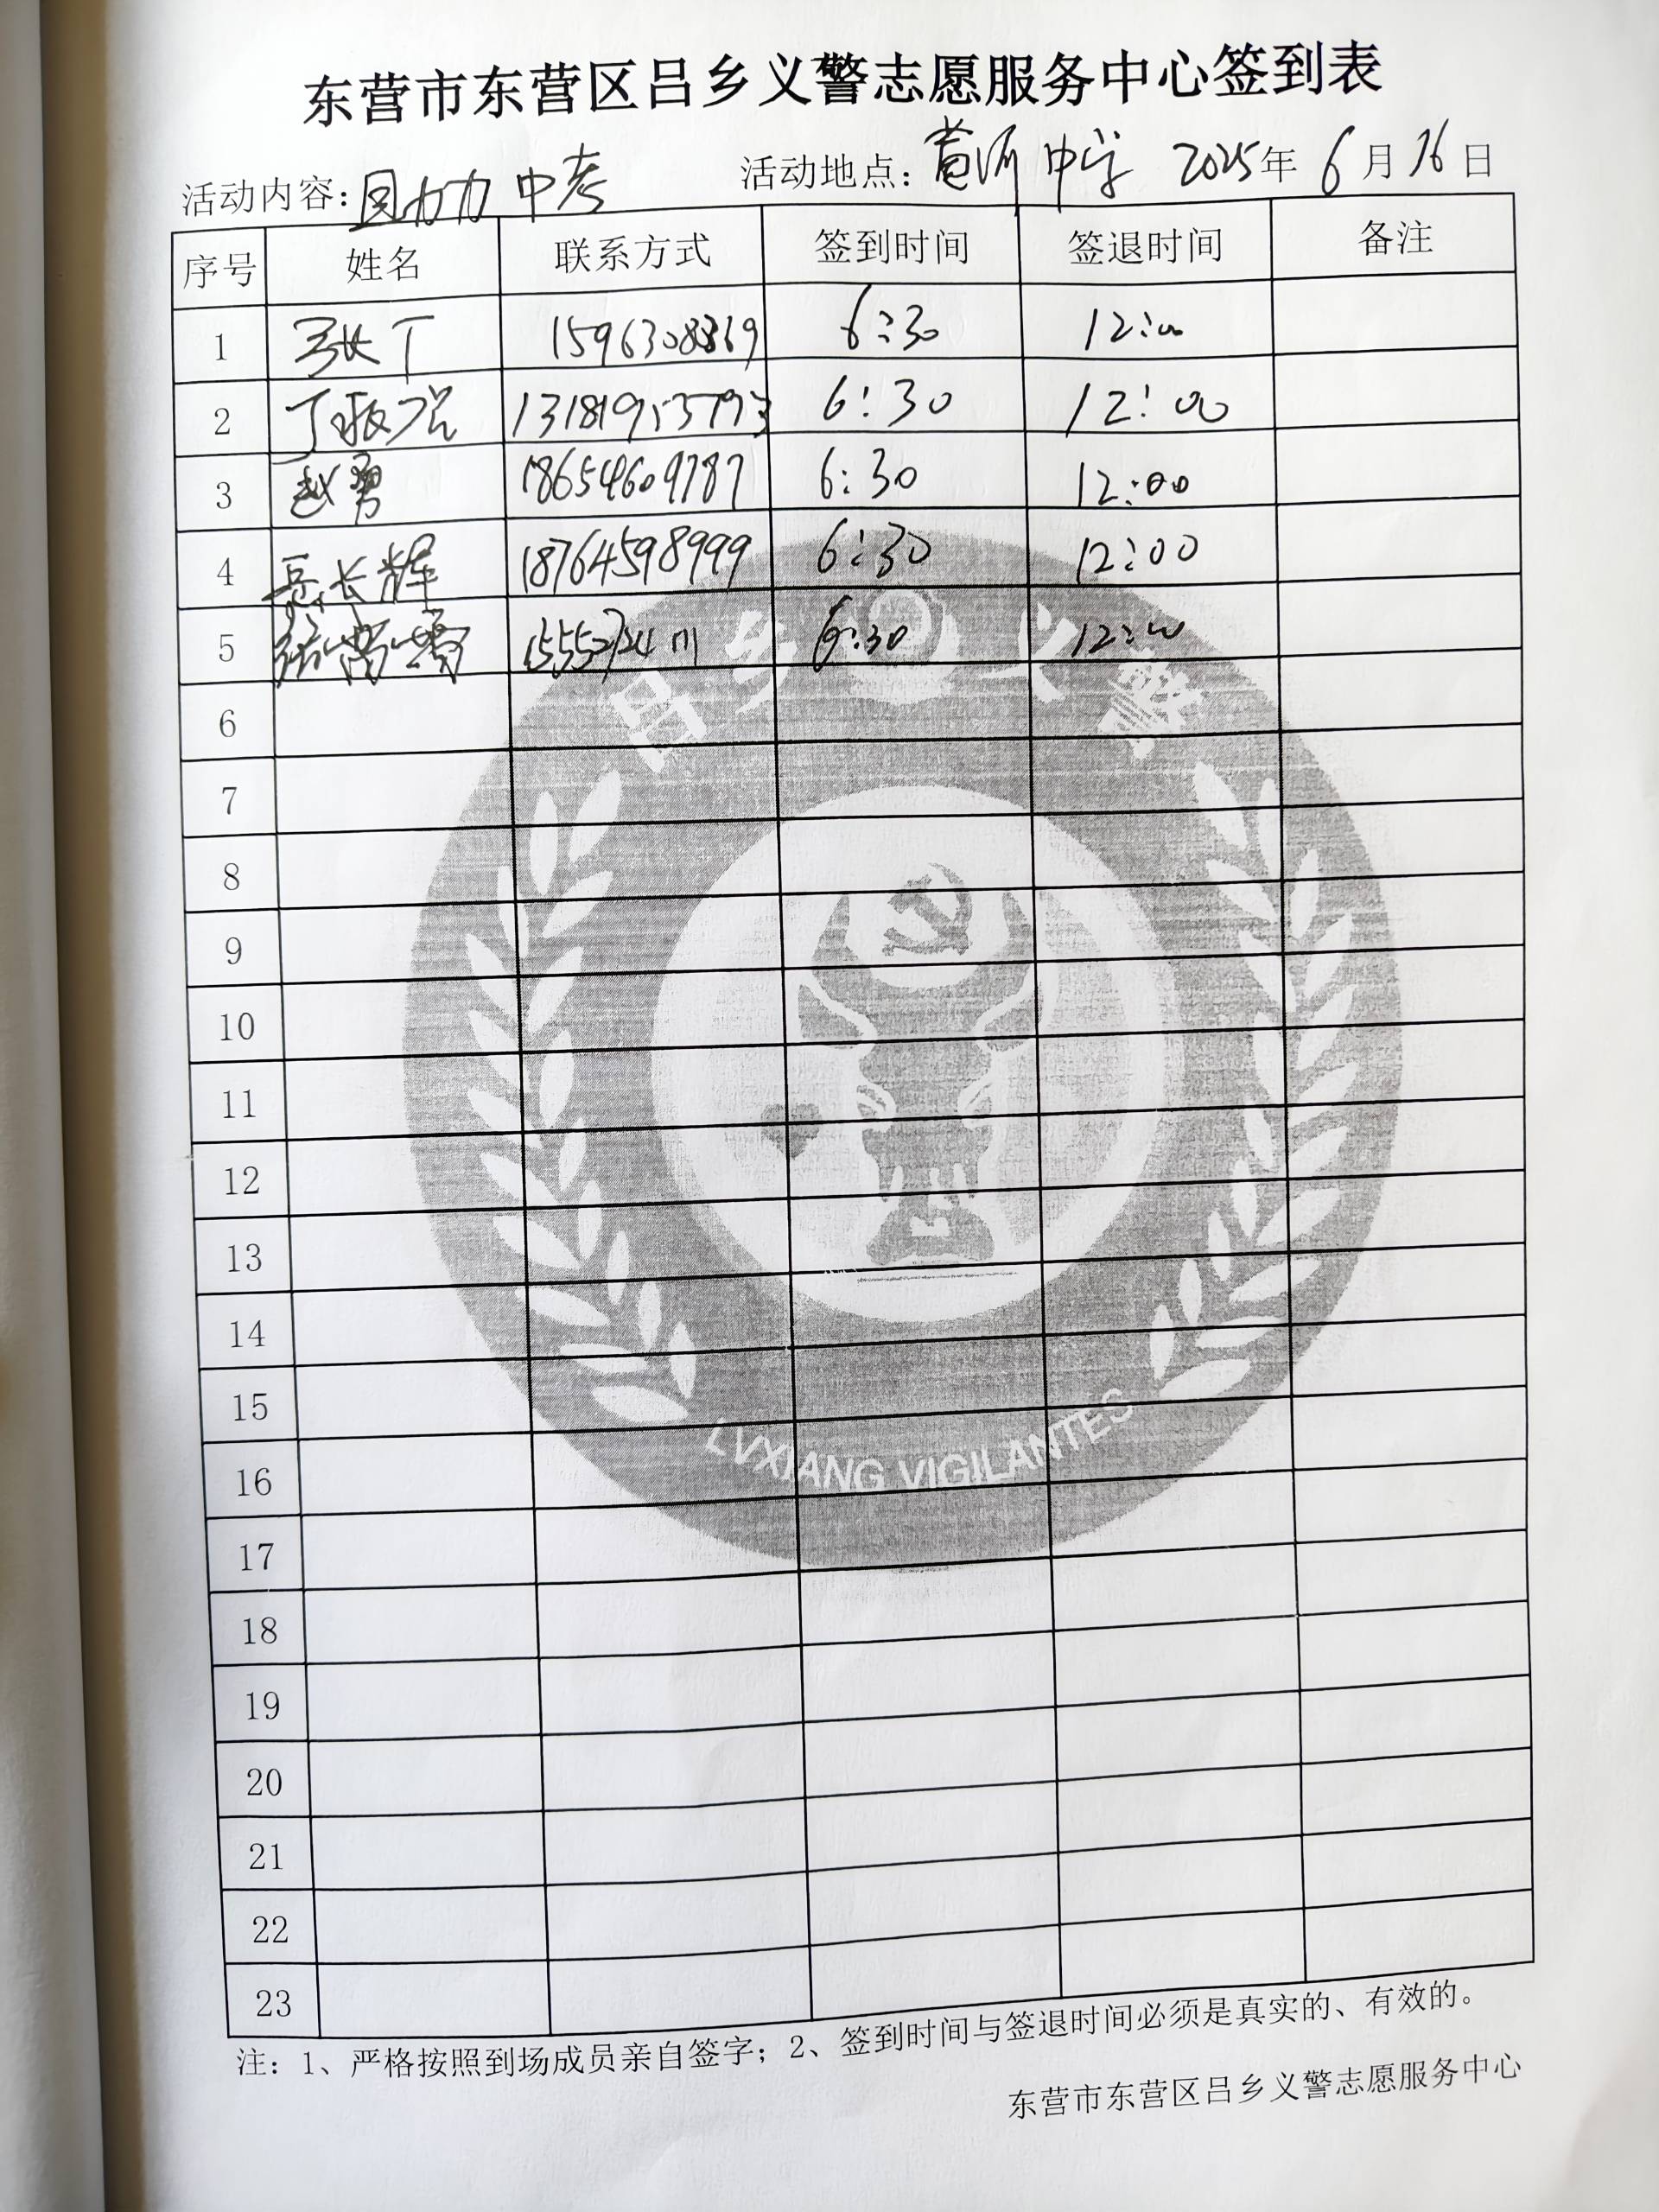 东营市东营区吕乡义警志愿服务中心签到表
活动内容: 中考 活动地点: 黄河中学 2025年 6月16日
序号 姓名 联系方式 签到时间 签退时间 备注
1 张丁 1596308869 6:30 12:00
2 丁 6:30 12:00
3 赵勇 18654609787 6:30 12:00
4 岳长辉 18764598999 6:30 12:00
5 6:30 12:00
6
7
8
9
10
11
12
13
14
15
16
17
18
19
20
21
22
23
吕乡义警
LVXIANG VIGILANTES
注: 1、严格按照到场成员亲自签字; 2、签到时间与签退时间必须是真实的、有效的。
东营市东营区吕乡义警志愿服务中心